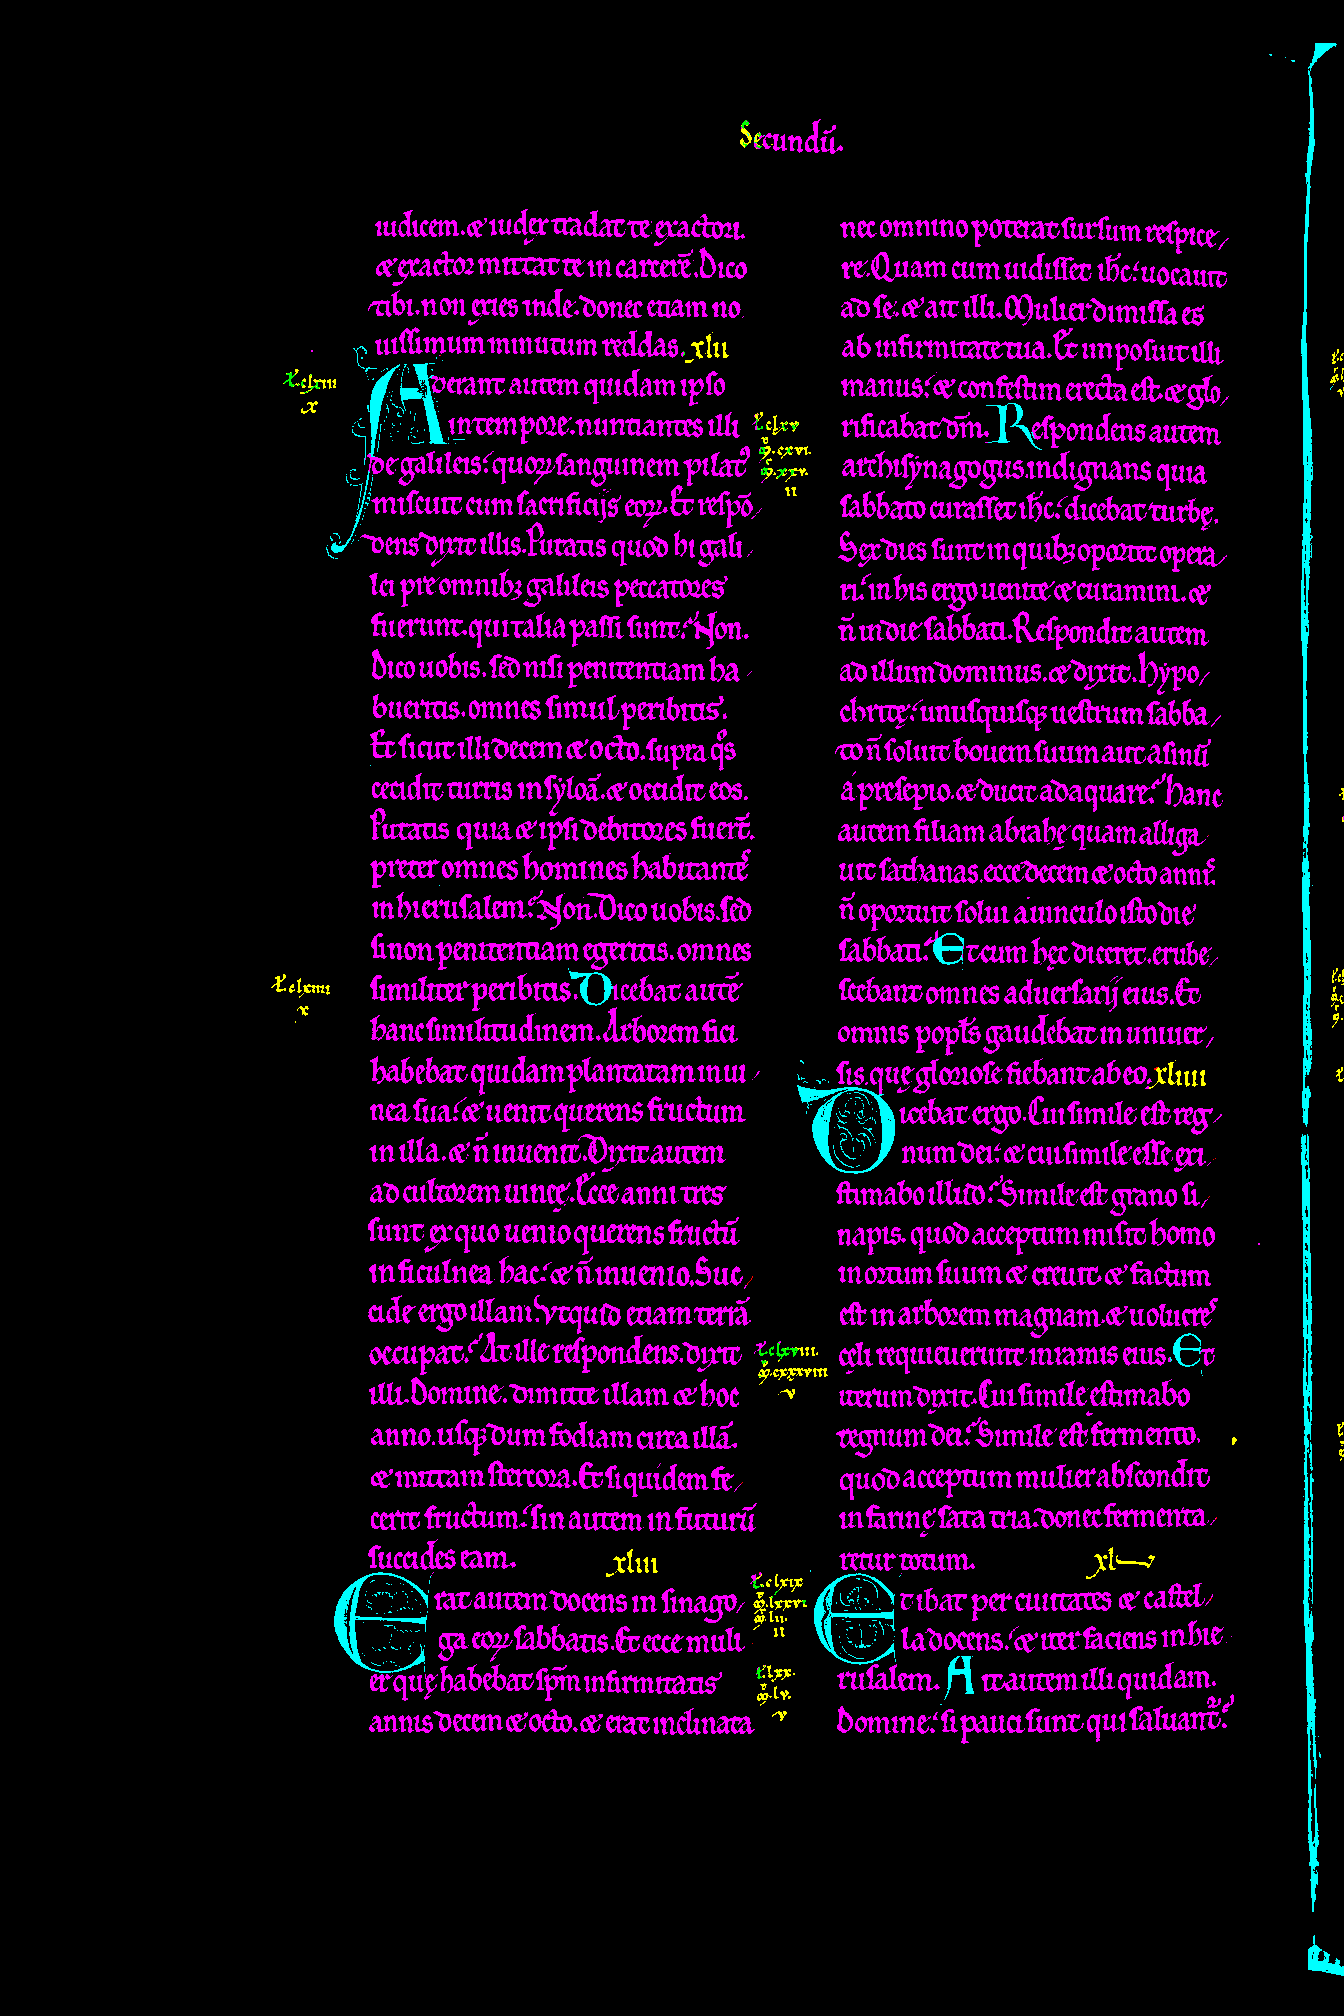 Secundū.
iudicem. & iudex tradat te exactori.
& exactor mittat te in carcerē. Dico
tibi. non exies inde. donec etiam no
uissimum minutum reddas. xlii
Aderant autem quidam ipso
in tempore. nuntiantes illi
de galileis: quoꝝ sanguinem pilatꝰ
miscuit cum sacrificijs eoꝝ. Et respō
dens dixit illis. Putatis quod hi gali
lei pre omnibꝫ galileis peccatores
fuerunt. qui talia passi sunt? Non.
Dico uobis. sed nisi penitentiam ha
bueritis. omnes simul peribitis.
Et sicut illi decem & octo. supra qͦs
cecidit turris in syloā. & occidit eos.
Putatis quia & ipsi debitores fuert̄.
preter omnes homines habitantes
in hierusalem? Non. Dico uobis. sed
si non penitentiam egeritis. omnes
similiter peribitis. Dicebat autē
hanc similitudinem. Arborem fici
habebat quidam plantatam in ui
nea sua: & uenit querens fructum
in illa. & n̄ inuenit. Dixit autem
ad cultorem uineę. Ecce anni tres
sunt ex quo uenio querens fructū
in ficulnea hac: & n̄ inuenio. Suc
cide ergo illam. Vtquid etiam terrā
occupat? At ille respondens. dixit
illi. Domine. dimitte illam & hoc
anno. usqꝫ dum fodiam circa illā.
& mittam stercora. Et siquidem fe
cerit fructum: sin autem in futurū
succides eam. xliii
Erat autem docens in sinago
ga eoꝝ sabbatis. Et ecce muli
er quę habebat sp̄m infirmitatis
annis decem & octo. & erat inclinata
nec omnino poterat sursum respice
re. Quam cum uidisset ih̄c: uocauit
ad se. & ait illi. Mulier dimissa es
ab infirmitate tua. Et imposuit illi
manus: & confestim erecta est. & glo
rificabat dm̄. Respondens autem
archisynagogus. indignans quia
sabbato curasset ih̄c: dicebat turbę.
Sex dies sunt in quibꝫ oportet opera
ri: in his ergo uenite & curamini. &
n̄ in die sabbati. Respondit autem
ad illum dominus. & dixit. Hypo
chritę: unusquisqꝫ uestrum sabba
to n̄ soluit bouem suum aut asinū
a presepio. & ducit adaquare? Hanc
autem filiam abrahę quam alliga
uit sathanas. ecce decem & octo annis:
n̄ oportuit solui a uinculo isto die
sabbati? Et cum hęc diceret. erube
scebant omnes aduersarij eius. Et
omnis popl̄s gaudebat in uniuer
sis. quę gloriose fiebant ab eo. xliiii
Dicebat ergo. Cui simile est reg
num dei: & cui simile esse exi
stimabo illud? Simile est grano si
napis. quod acceptum misit homo
in ortum suum & creuit & factum
est in arborem magnam. & uolucres
celi requieuerunt in ramis eius. Et
iterum dixit. Cui simile estimabo
regnum dei? Simile est fermento.
quod acceptum mulier abscondit
in farinę sata tria. donec fermenta
retur totum. xlv
Et ibat per ciuitates & castel
la docens: & iter faciens in hie
rusalem. Ait autem illi quidam.
Domine: si pauci sunt qui saluant᷑?
clxiii
x
clxv
cxvi.
xxv.
ii
clxiiii
x
clxviii.
cxxxviii
v
clxix
lxxvi
lii.
ii
lxx.
lv.
v